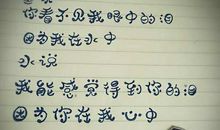 你看不见我眼中的泪
因为我在水中
水说
我能感觉得到你的泪
因为你在我心中